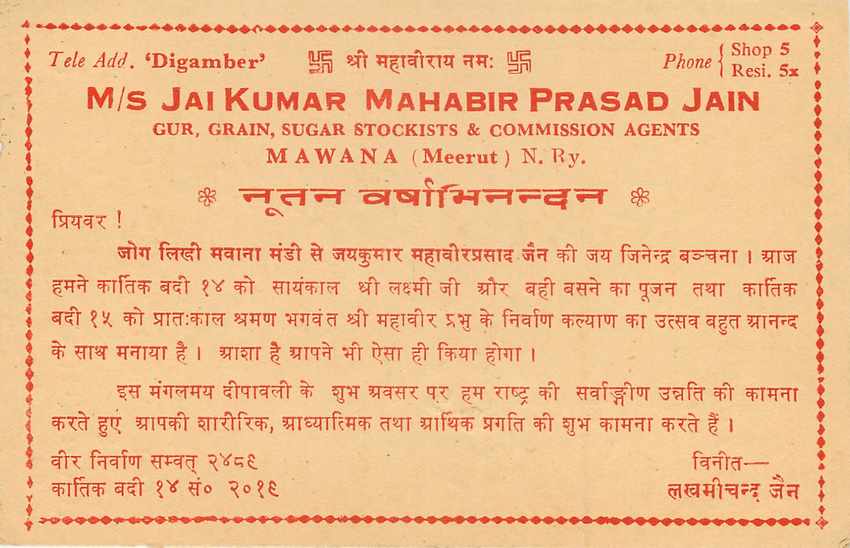 Tele Add. 'Digamber' 卐 श्री महावीराय नमः 卐 Phone { Shop 5
Resi. 5x
M/s JAI KUMAR MAHABIR PRASAD JAIN
GUR, GRAIN, SUGAR STOCKISTS & COMMISSION AGENTS
MAWANA (Meerut) N. Ry.
नूतन वर्षाभिनन्दन
प्रियवर !
जोग लिखी मवाना मंडी से जयकुमार महावीरप्रसाद जैन की जय जिनेन्द्र बञ्चना । आज
हमने कार्तिक वदी १४ को सायंकाल श्री लक्ष्मी जी और बही बसने का पूजन तथा कार्तिक
बदी १५ को प्रातःकाल श्रमण भगवंत श्री महावीर प्रभु के निर्वाण कल्याण का उत्सव बहुत आनन्द
के साथ मनाया है । आशा है आपने भी ऐसा ही किया होगा ।
इस मंगलमय दीपावली के शुभ अवसर पर हम राष्ट्र की सर्वाङ्गीण उन्नति की कामना
करते हुए आपकी शारीरिक, आध्यात्मिक तथा आर्थिक प्रगति की शुभ कामना करते हैं ।
वीर निर्वाण सम्वत् २४८९ विनीत—
कार्तिक बदी १४ सं० २०१९ लखमीचन्द जैन